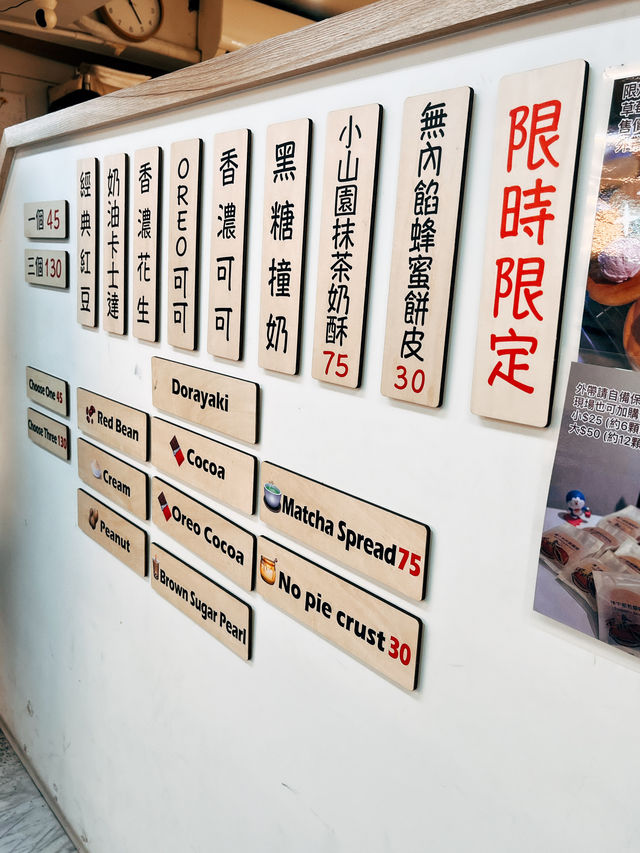 一個 45
三個 130
經典紅豆
奶油卡士達
香濃花生
OREO可可
香濃可可
黑糖撞奶
小山園抹茶奶酥 75
無內餡蜂蜜餅皮 30
限時限定
Choose One 45
Choose Three 130
Dorayaki
Red Bean
Cream
Peanut
Cocoa
Oreo Cocoa
Brown Sugar Pearl
Matcha Spread 75
No pie crust 30
外帶請自備保
現場也可加購
小$25 (約6顆
大$50 (約12顆